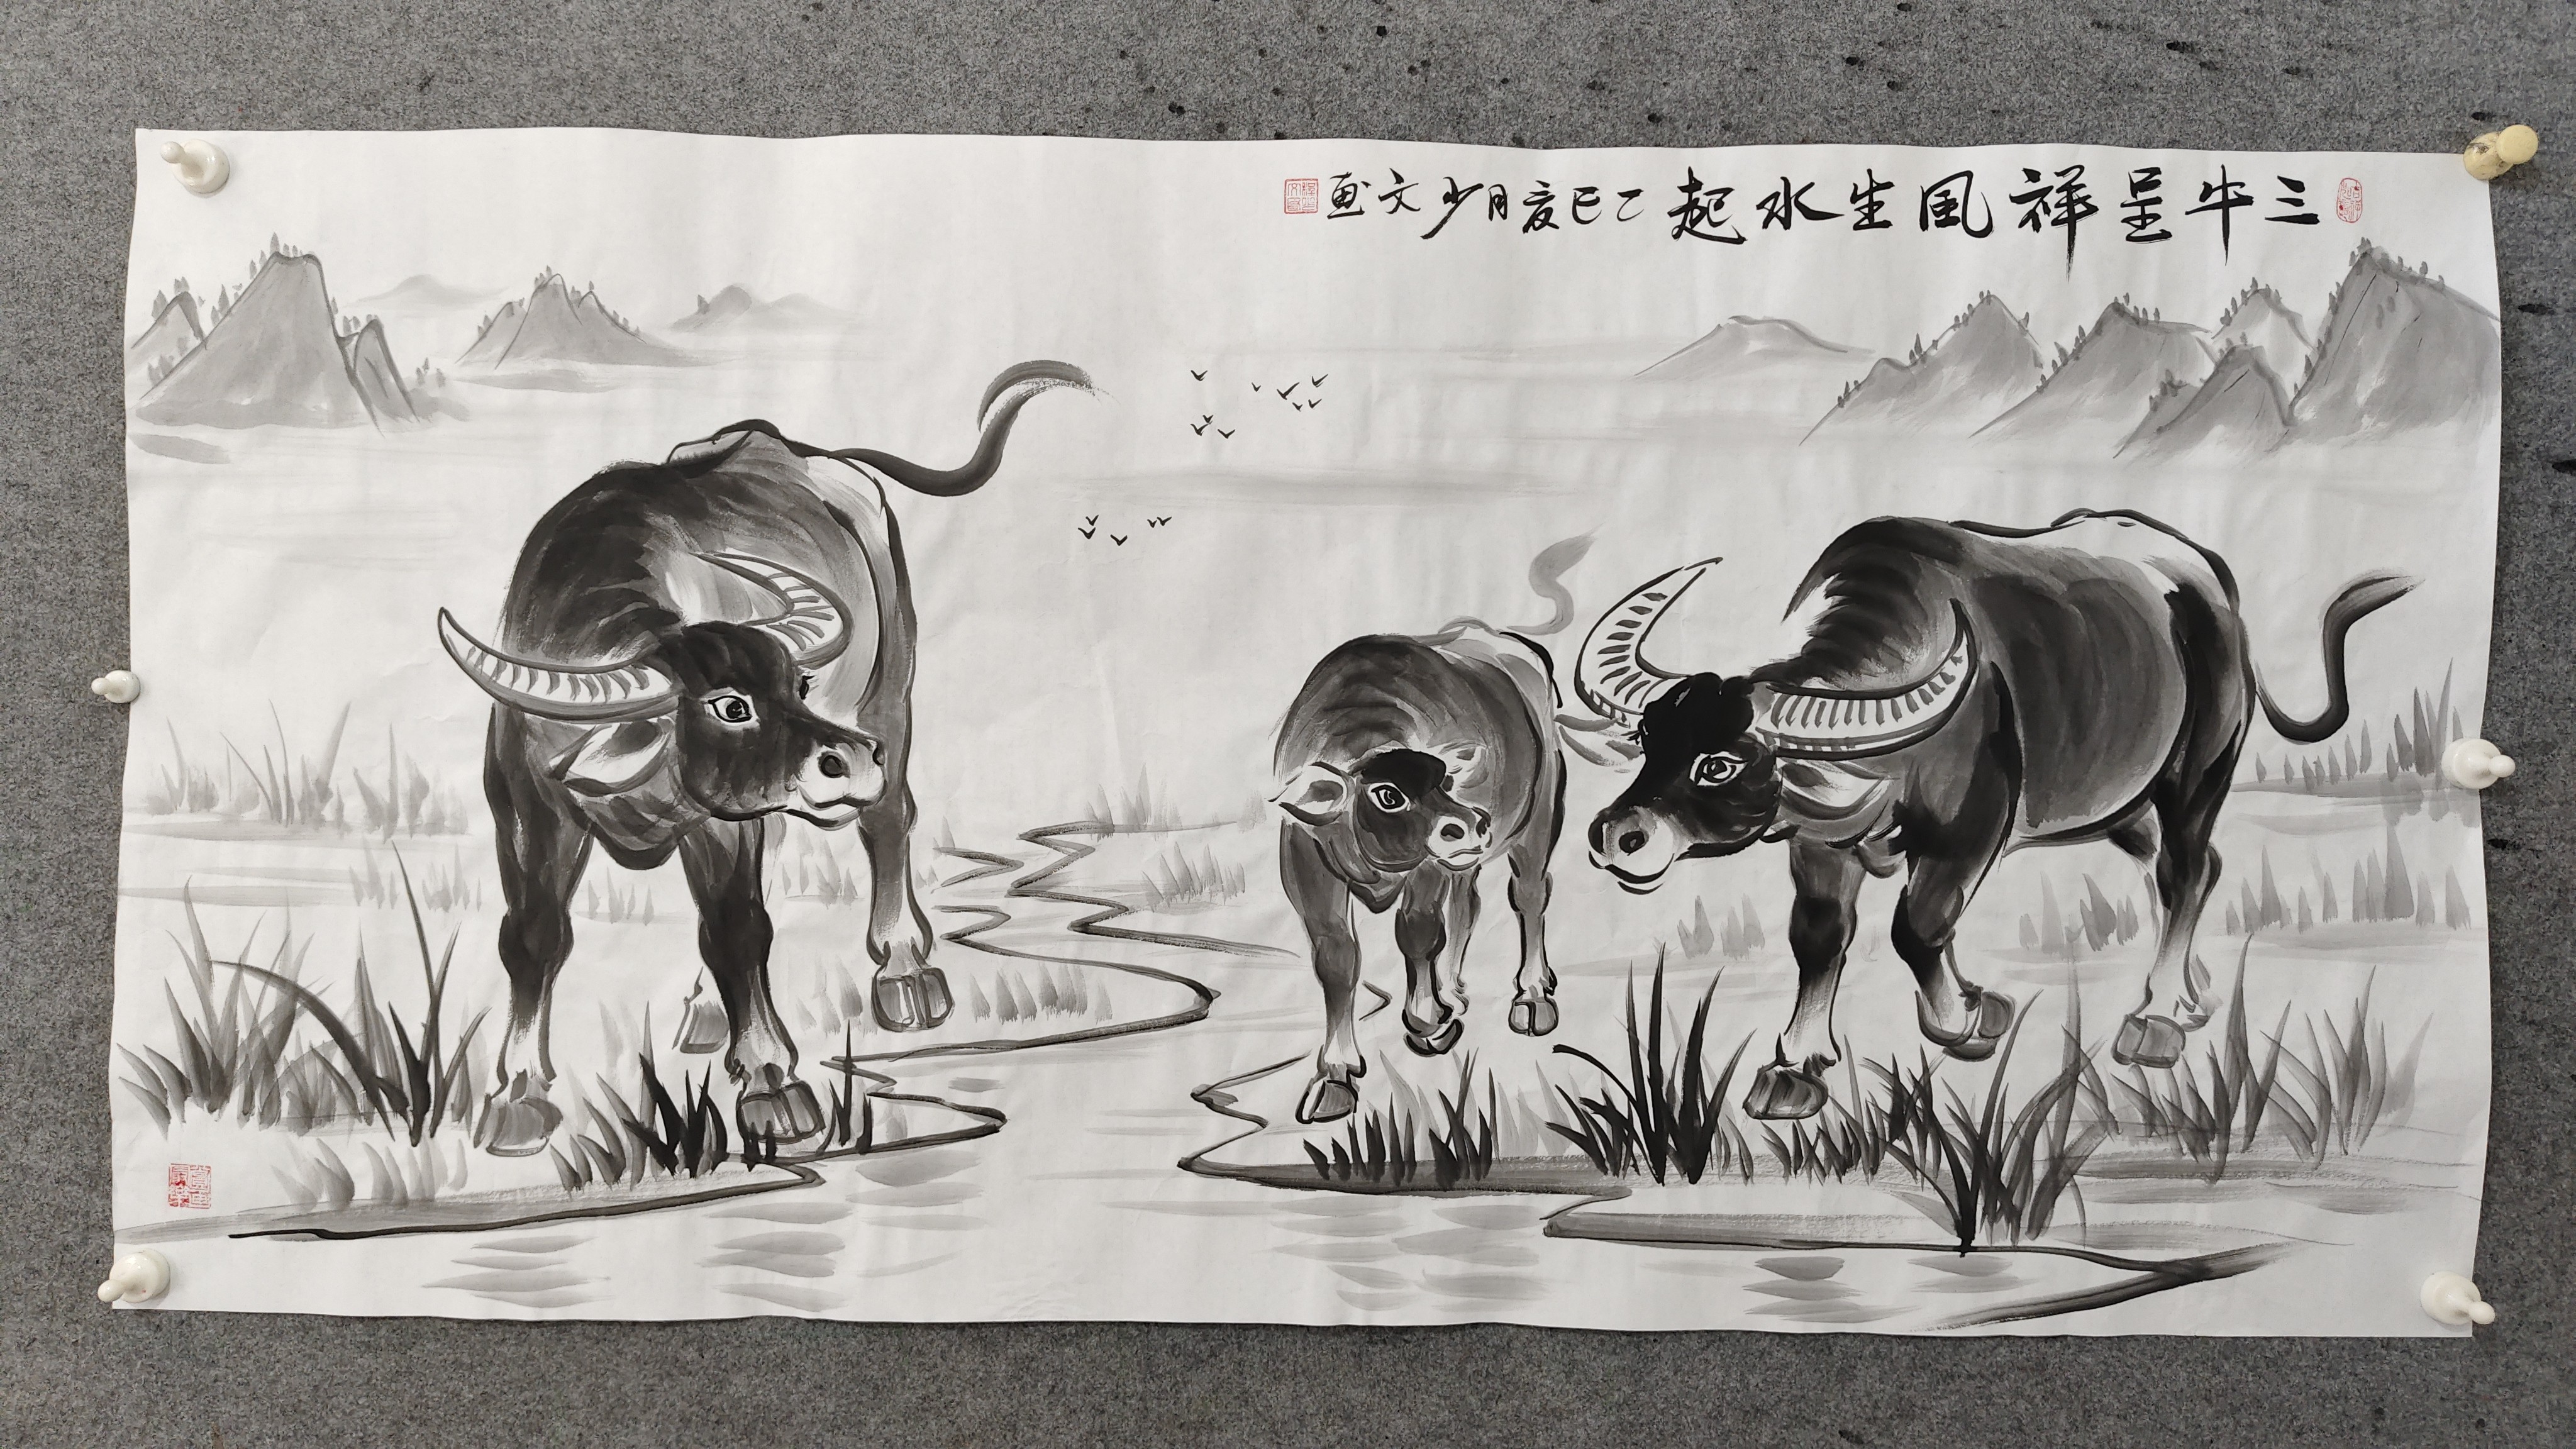 三牛呈祥風生水起乙巳亥月少文画